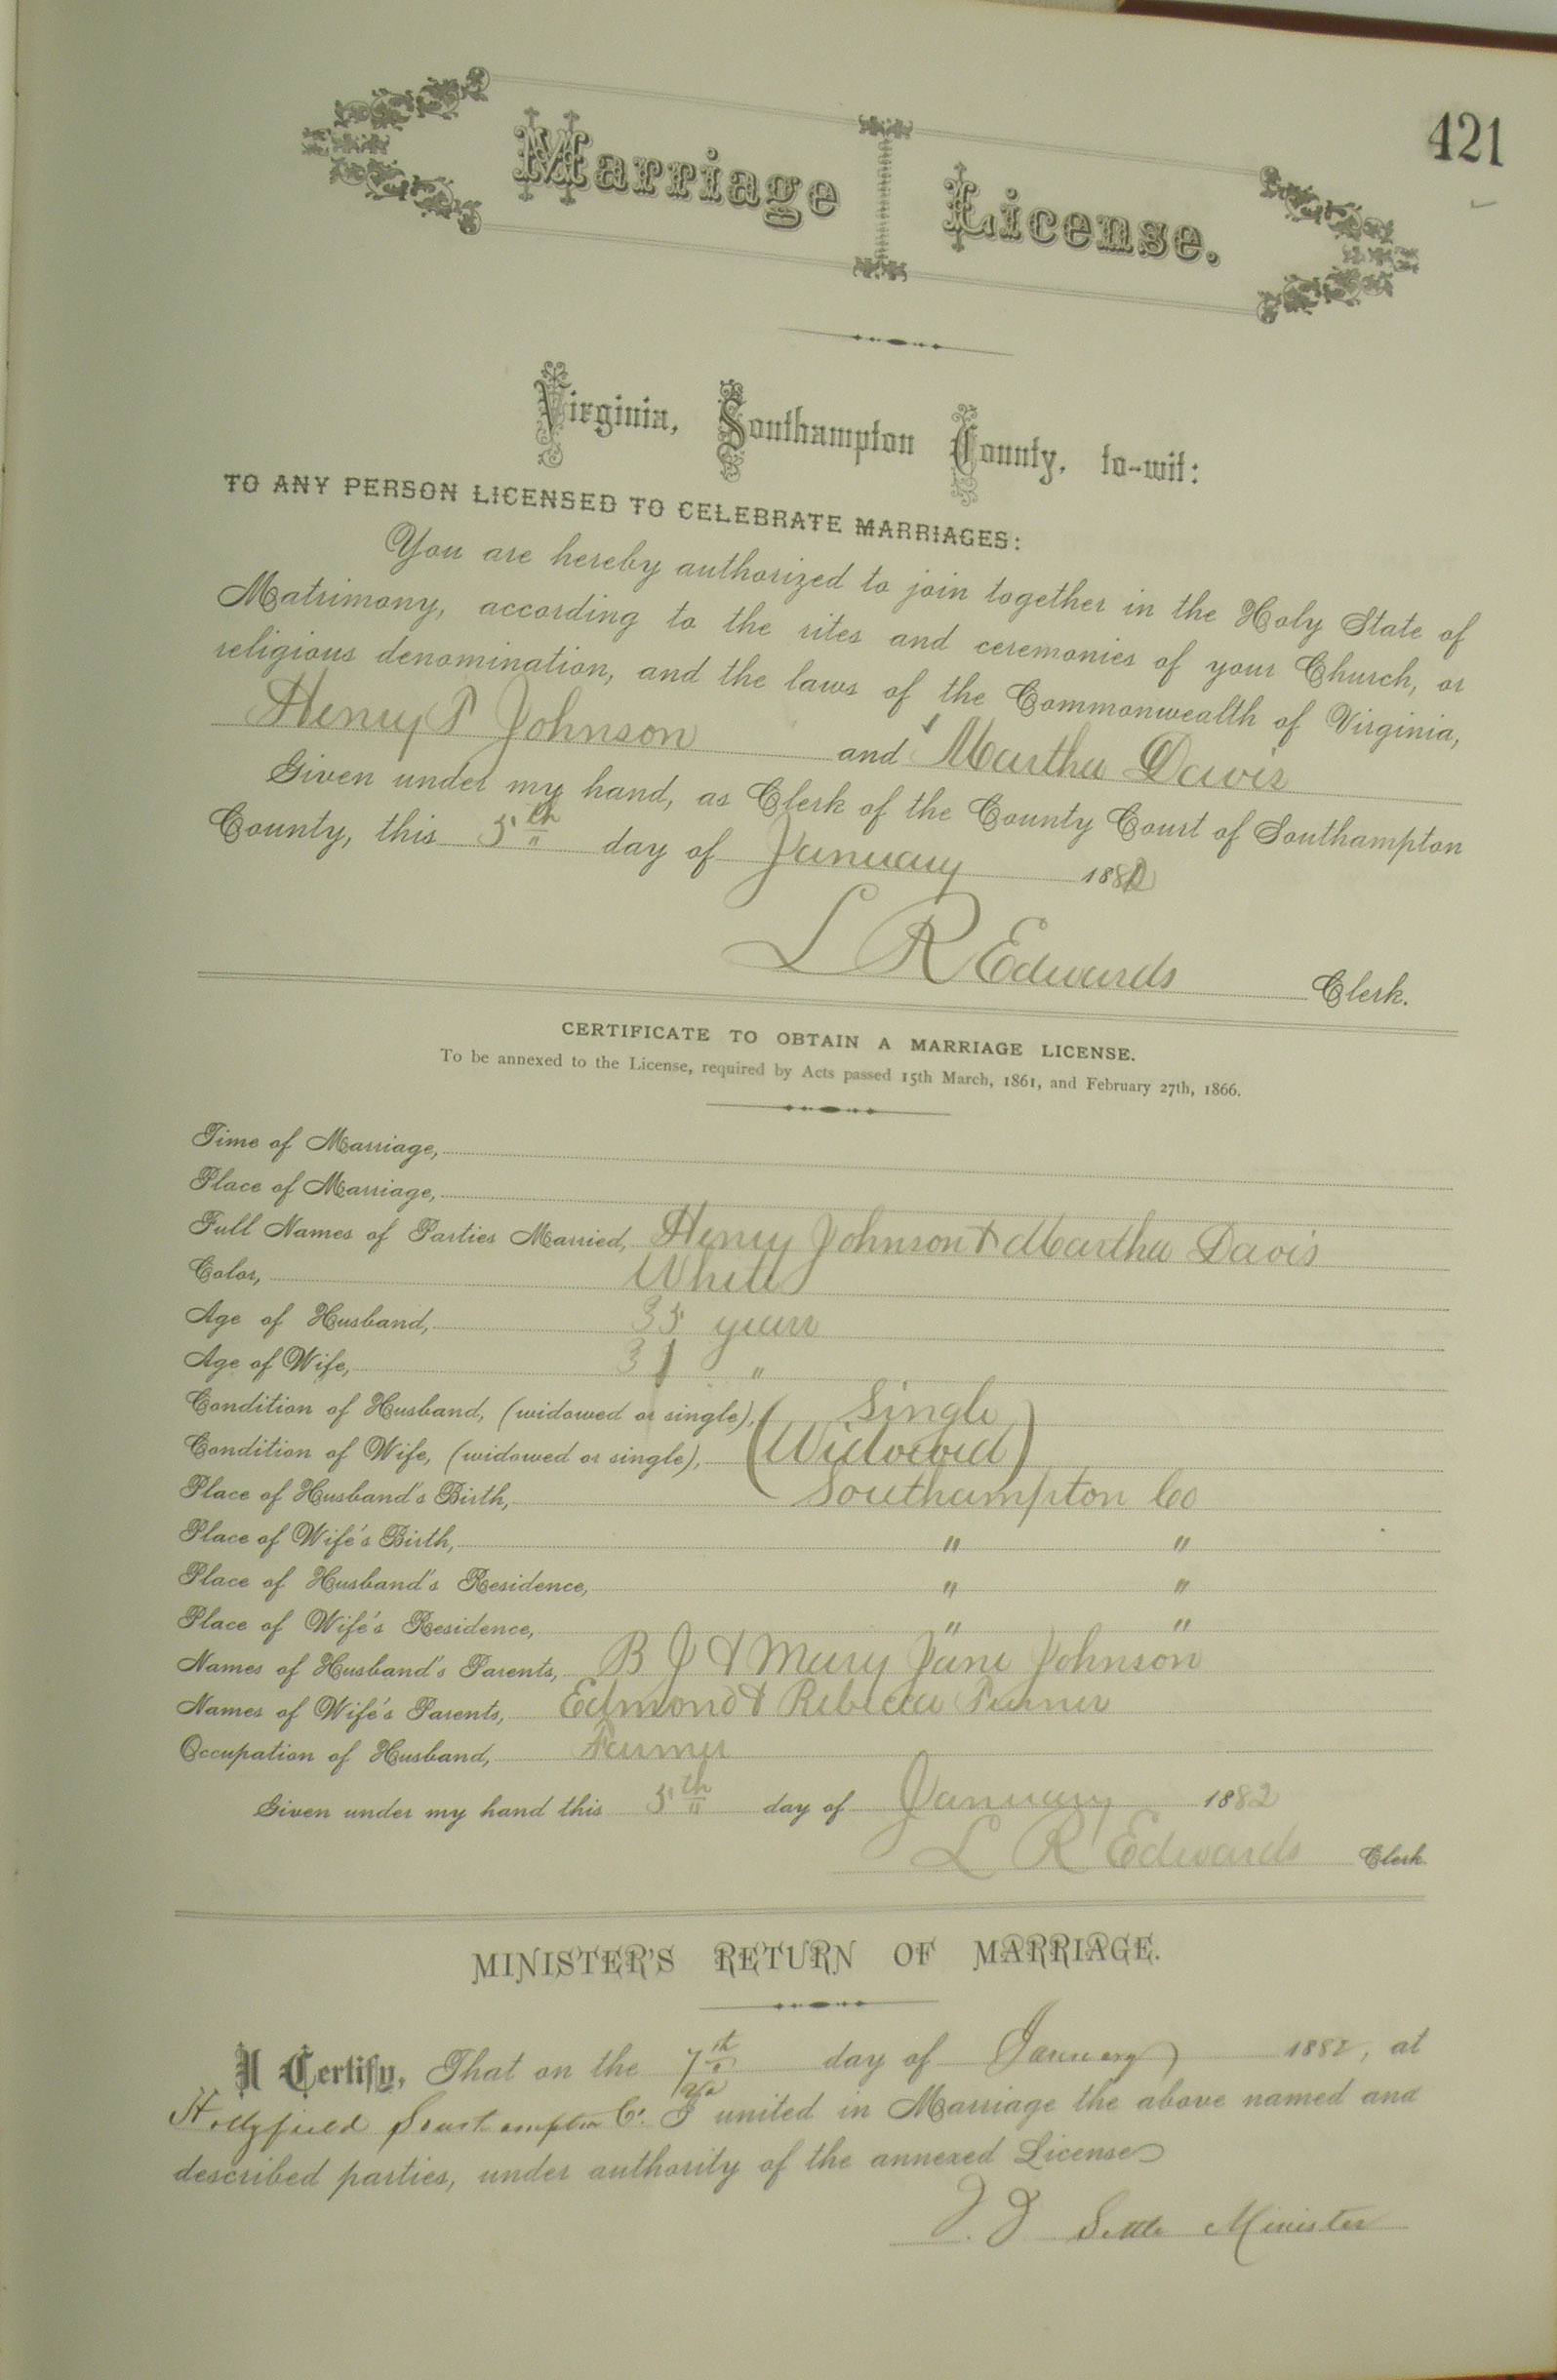 421
Marriage License.
Virginia, Southampton County, to-wit:
TO ANY PERSON LICENSED TO CELEBRATE MARRIAGES:
You are hereby authorized to join together in the Holy State of
Matrimony, according to the rites and ceremonies of your Church, or
religious denomination, and the laws of the Commonwealth of Virginia,
Henry P Johnson and Martha Davis
Given under my hand, as Clerk of the County Court of Southampton
County, this 5th day of January 1882
L R Edwards Clerk.
CERTIFICATE TO OBTAIN A MARRIAGE LICENSE.
To be annexed to the License, required by Acts passed 15th March, 1861, and February 27th, 1866.
Time of Marriage,
Place of Marriage,
Full Names of Parties Married, Henry Johnson & Martha Davis
Color, White
Age of Husband, 35 years
Age of Wife, 31 "
Condition of Husband, (widowed or single), Single
Condition of Wife, (widowed or single), (Widowed)
Place of Husband's Birth, Southampton Co
Place of Wife's Birth, " "
Place of Husband's Residence, " "
Place of Wife's Residence, " "
Names of Husband's Parents, B J & Mary Jane Johnson
Names of Wife's Parents, Edmond & Rebecca Turner
Occupation of Husband, Farmer
Given under my hand this 5th day of January 1882
L R Edwards Clerk
MINISTER'S RETURN OF MARRIAGE.
I Certify, That on the 7th day of January 1882, at
Hollyfield Southampton Co. Va I united in Marriage the above named and
described parties, under authority of the annexed License
Settle Minister